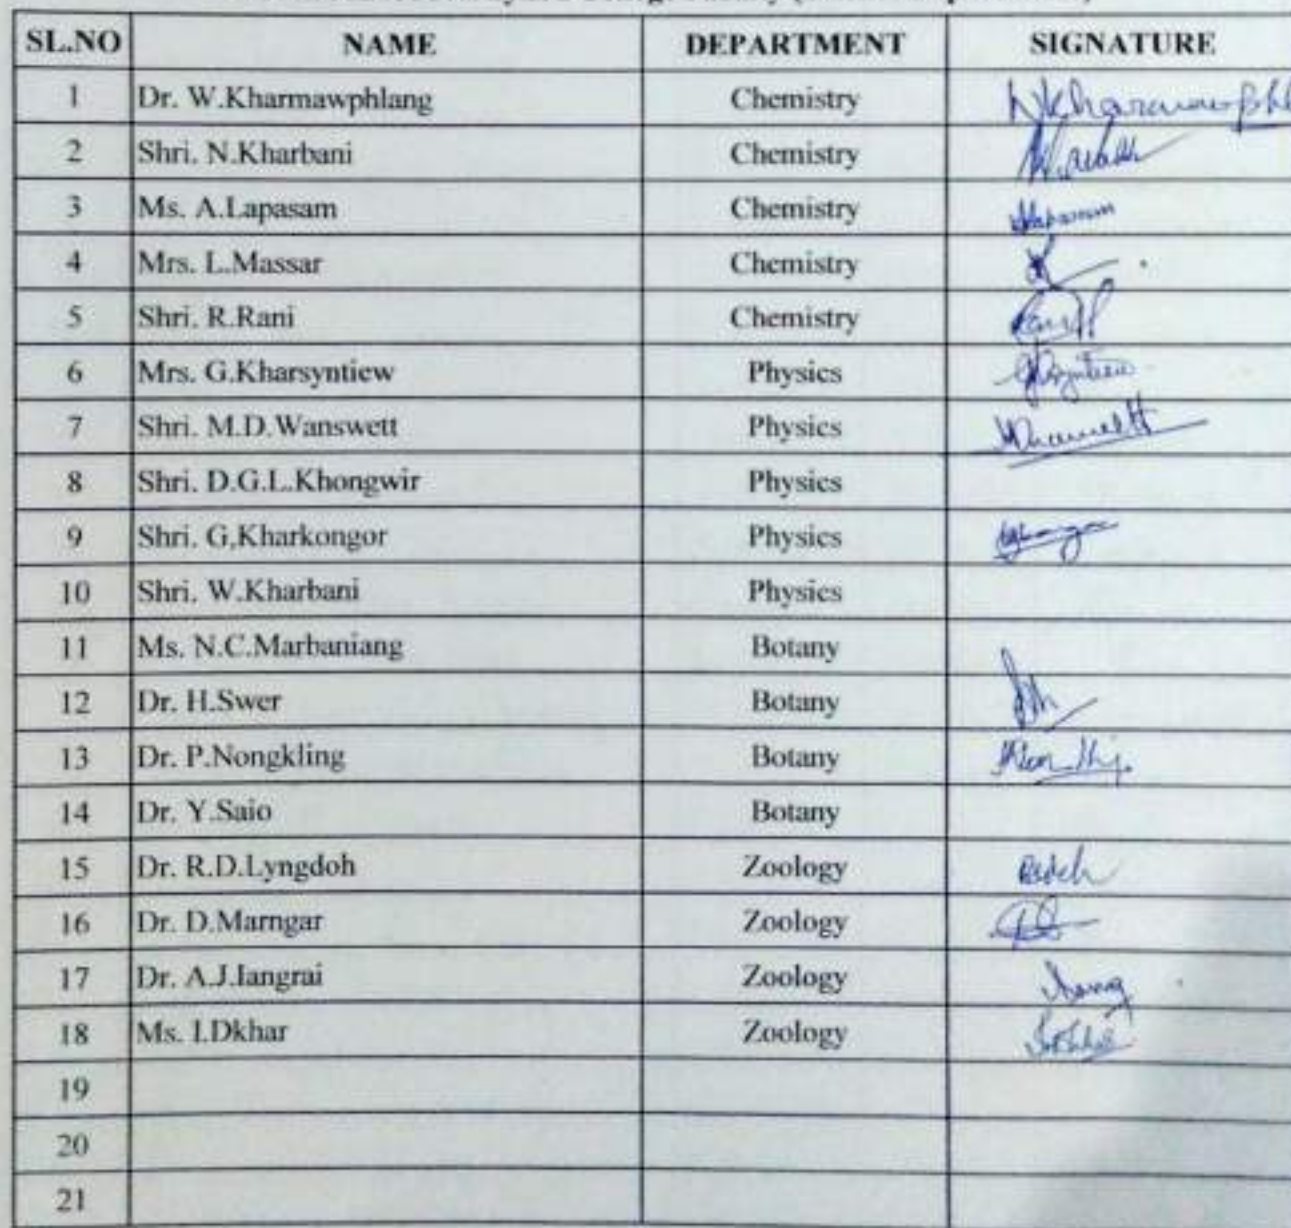 SL.NO NAME DEPARTMENT SIGNATURE
1 Dr. W.Kharmawphlang Chemistry
2 Shri. N.Kharbani Chemistry
3 Ms. A.Lapasam Chemistry
4 Mrs. L.Massar Chemistry
5 Shri. R.Rani Chemistry
6 Mrs. G.Kharsyntiew Physics
7 Shri. M.D.Wanswett Physics
8 Shri. D.G.L.Khongwir Physics
9 Shri. G,Kharkongor Physics
10 Shri. W.Kharbani Physics
11 Ms. N.C.Marbaniang Botany
12 Dr. H.Swer Botany
13 Dr. P.Nongkling Botany
14 Dr. Y.Saio Botany
15 Dr. R.D.Lyngdoh Zoology
16 Dr. D.Marngar Zoology
17 Dr. A.J.Iangrai Zoology
18 Ms. I.Dkhar Zoology
19
20
21